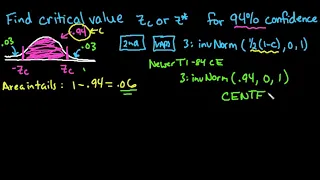 Find critical value Zc or Z* for 94% confidence
.94 C
.03 .03
-Zc Zc
2nd VARS 3: invNorm (½(1-C), 0, 1)
Newer TI-84 CE
3: invNorm (.94, 0, 1)
CENTE
Area in tails: 1-.94=.06